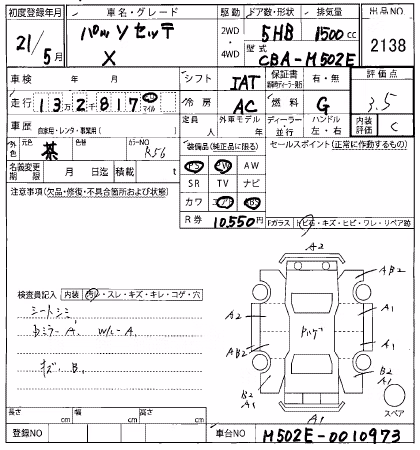 初度登録年月 車名・グレード 駆動 ドア数・形状 排気量 出品NO
21/5月 パッソセッテ X 2WD・4WD 5HB 1500cc 2138
型式 CBA-M502E
車検 年 月 シフト IAT 保証書 有・無 評価点
走行 132千817 ㎞ マイル 冷房 AC 燃料 G 3.5
車歴 自家用・レンタ・事業用( ) 定員 人 外車モデル ディーラー・並行 ハンドル 左・右 内装評価 C
外色 元色 色替 カラーNO R56
装備品(純正品に限る) セールスポイント(正常に作動するもの)
名義変更期限 月 日迄 積載 t PS PW AW
注意事項(欠品・修復・不具合箇所および状態) SR TV ナビ
カワ エアB ABS
R券 10,550円 Fガラス トビ石・キズ・ヒビ・ワレ・リペア跡
A2
AB2
検査員記入 内装 汚れ・スレ・キズ・キレ・コゲ・穴
シートシミ
A2 A1
右ミラーA' W/L-A
AB2 A1
キズ.B.
B2 A1
B2 A1
A1
スペア
長さ cm 幅 cm 高さ cm
登録NO 車台NO M502E-0010973